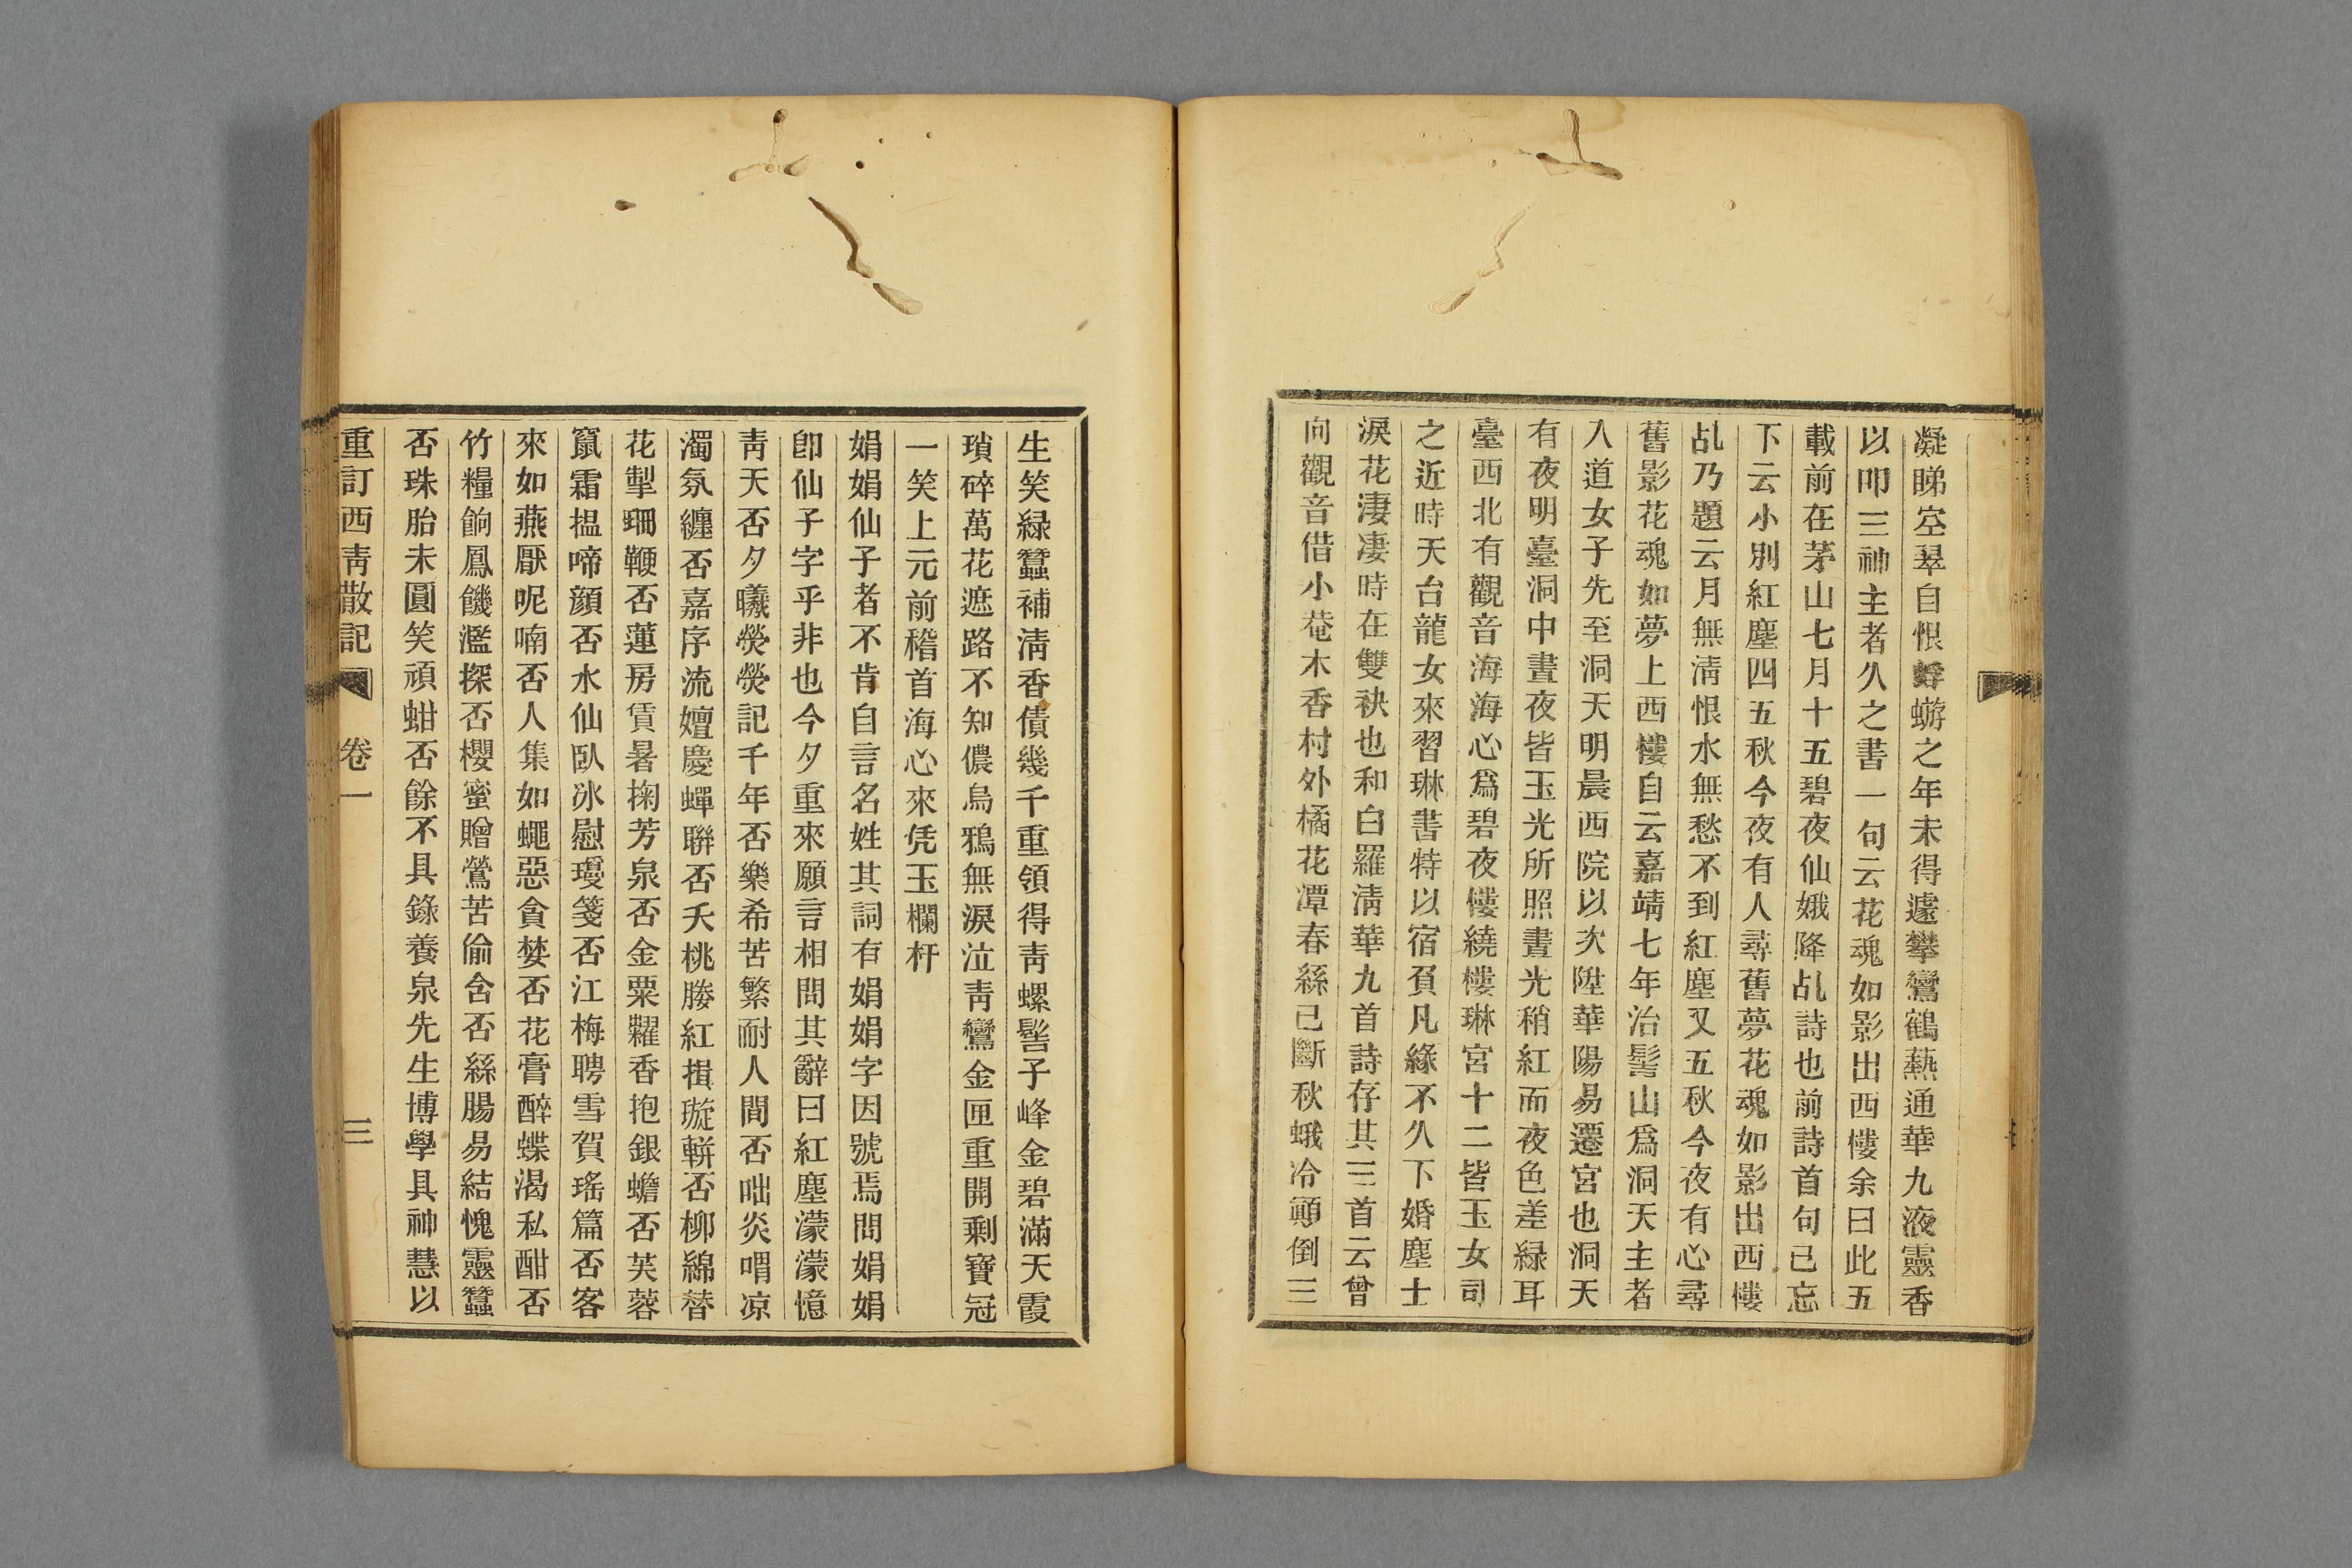 凝睇空翠自恨蜉蝣之年未得遽攀鸞鶴爇通華九液靈香
以叩三神主者久之書一句云花魂如影出西樓余曰此五
載前在茅山七月十五碧夜仙娥降乩詩也前詩首句已忘
下云小別紅塵四五秋今夜有人尋舊夢花魂如影出西樓
乩乃題云月無淸恨水無愁不到紅塵又五秋今夜有心尋
舊影花魂如夢上西樓自云嘉靖七年治髻山爲洞天主者
入道女子先至洞天明晨西院以次陞華陽易遷宮也洞天
有夜明臺洞中晝夜皆玉光所照晝光稍紅而夜色差緑耳
臺西北有觀音海海心爲碧夜樓繞樓琳宮十二皆玉女司
之近時天台龍女來習琳書特以宿負凡緣不久下婚塵士
淚花淒淒時在雙袂也和白羅淸華九首詩存其三首云曾
向觀音借小菴木香村外橘花潭春絲已斷秋蛾冷顚倒三
生笑緑蠶補淸香債幾千重領得靑螺髻子峰金碧滿天霞
瑣碎萬花遮路不知儂烏鴉無淚泣靑鸞金匣重開剩寶冠
一笑上元前稽首海心來凭玉欄杆
娟娟仙子者不肯自言名姓其詞有娟娟字因號焉問娟娟
卽仙子字乎非也今夕重來願言相問其辭曰紅塵濛濛憶
靑天否夕曦熒熒記千年否樂希苦繁耐人間否咄炎喟凉
濁氛纏否嘉序流嬗慶蟬聯否夭桃媵紅揖璇輧否柳綿替
花掣珊鞭否蓮房賃暑掬芳泉否金粟糶香抱銀蟾否芙蓉
竄霜揾啼顔否水仙臥冰慰瓊箋否江梅聘雪賀瑤篇否客
來如燕厭呢喃否人集如蠅惡貪婪否花膏醉蝶渴私酣否
竹糧餉鳳饑濫探否櫻蜜贈鶯苦偷含否絲腸易結愧靈蠶
否珠胎未圓笑頑蚶否餘不具錄養泉先生博學具神慧以
重訂西靑散記 卷一 三